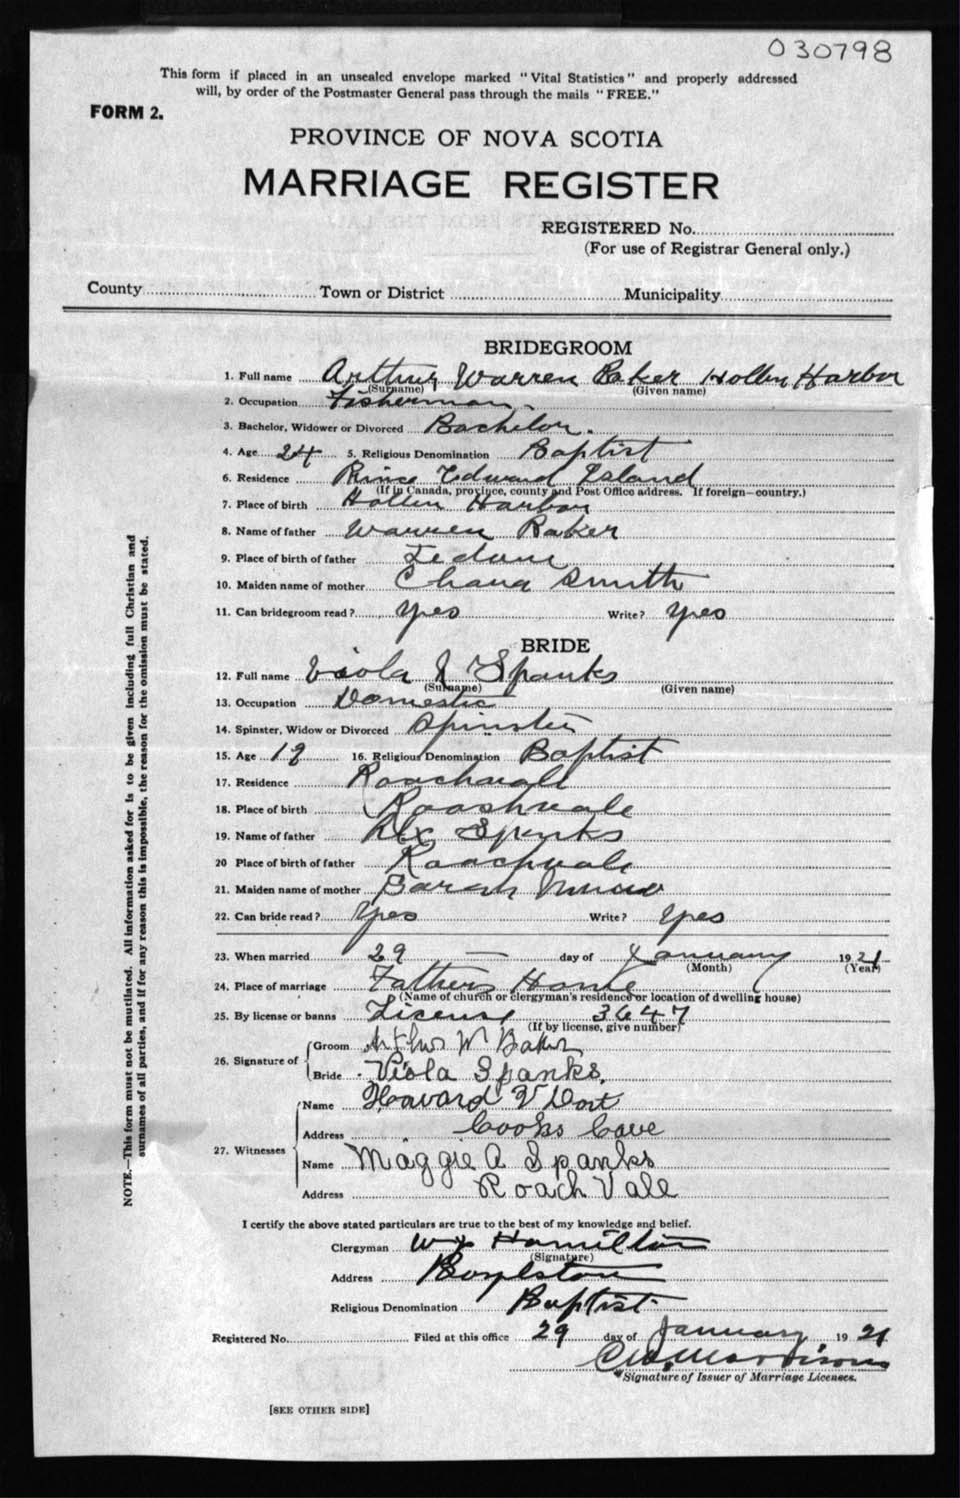 030798
This form if placed in an unsealed envelope marked "Vital Statistics" and properly addressed
will, by order of the Postmaster General pass through the mails "FREE."
FORM 2.
PROVINCE OF NOVA SCOTIA
MARRIAGE REGISTER
REGISTERED No.
(For use of Registrar General only.)
County Town or District Municipality
BRIDEGROOM
1. Full name Arthur Warren Baker Holley Harbor
(Surname) (Given name)
2. Occupation Fisherman.
3. Bachelor, Widower or Divorced Bachelor.
4. Age 24 5. Religious Denomination Baptist
6. Residence Prince Edward Island
(If in Canada, province, county and Post Office address. If foreign—country.)
7. Place of birth Harbor
8. Name of father Warren Baker
9. Place of birth of father
10. Maiden name of mother Smith
11. Can bridegroom read? Yes Write? Yes
BRIDE
12. Full name Viola J Spanks
(Surname) (Given name)
13. Occupation Domestic
14. Spinster, Widow or Divorced Spinster
15. Age 19 16. Religious Denomination Baptist
17. Residence Roachvale
18. Place of birth Roachvale
19. Name of father Alx Spanks
20 Place of birth of father Roachvale
21. Maiden name of mother Sarah
22. Can bride read? Yes Write? Yes
23. When married 29 — day of January 1921
(Month) (Year)
24. Place of marriage Fathers Home
(Name of church or clergyman's residence or location of dwelling house)
25. By license or banns License 3647
(If by license, give number)
26. Signature of Groom Arthur W Baker
Bride Viola Spanks.
27. Witnesses Name Howard V Dort
Address Cooks Cove
Name Maggie A Spanks
Address Roach Vale
I certify the above stated particulars are true to the best of my knowledge and belief.
Clergyman Hamilton
(Signature)
Address Boylston
Religious Denomination Baptist
Registered No. Filed at this office 29 day of January 1921
Morrison
Signature of Issuer of Marriage Licenses.
[SEE OTHER SIDE]
NOTE.—This form must not be mutilated. All information asked for is to be given including full Christian and
surnames of all parties, and if for any reason this is impossible, the reason for the omission must be stated.